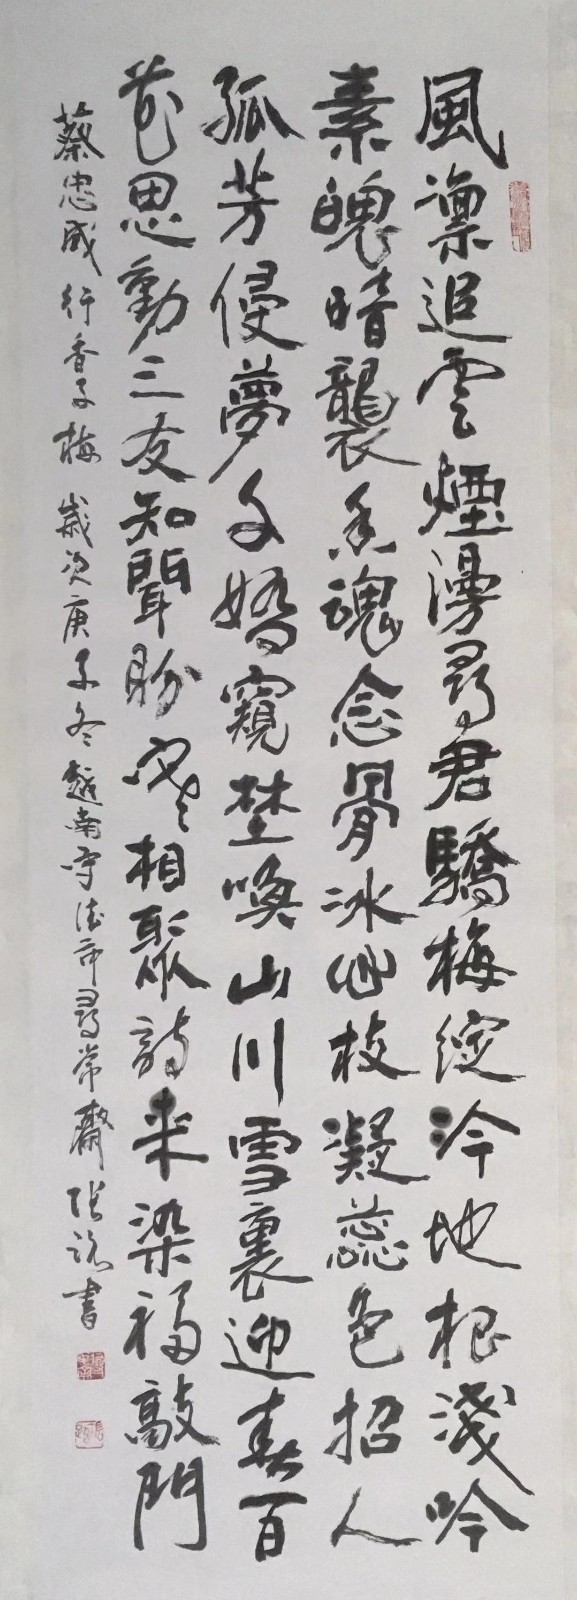 風凛追雲煙漫尋君驕梅綻冷地根淺吟
素魄暗襲香魂念骨冰心枝凝蕊色招人
孤芳侵夢嬌窺埜喚山川雪裏迎春百
花思動三友知聞盼相聚詩来染福敲門
蔡忠成行香子梅 歲次庚子冬越南守德市尋常齋張書